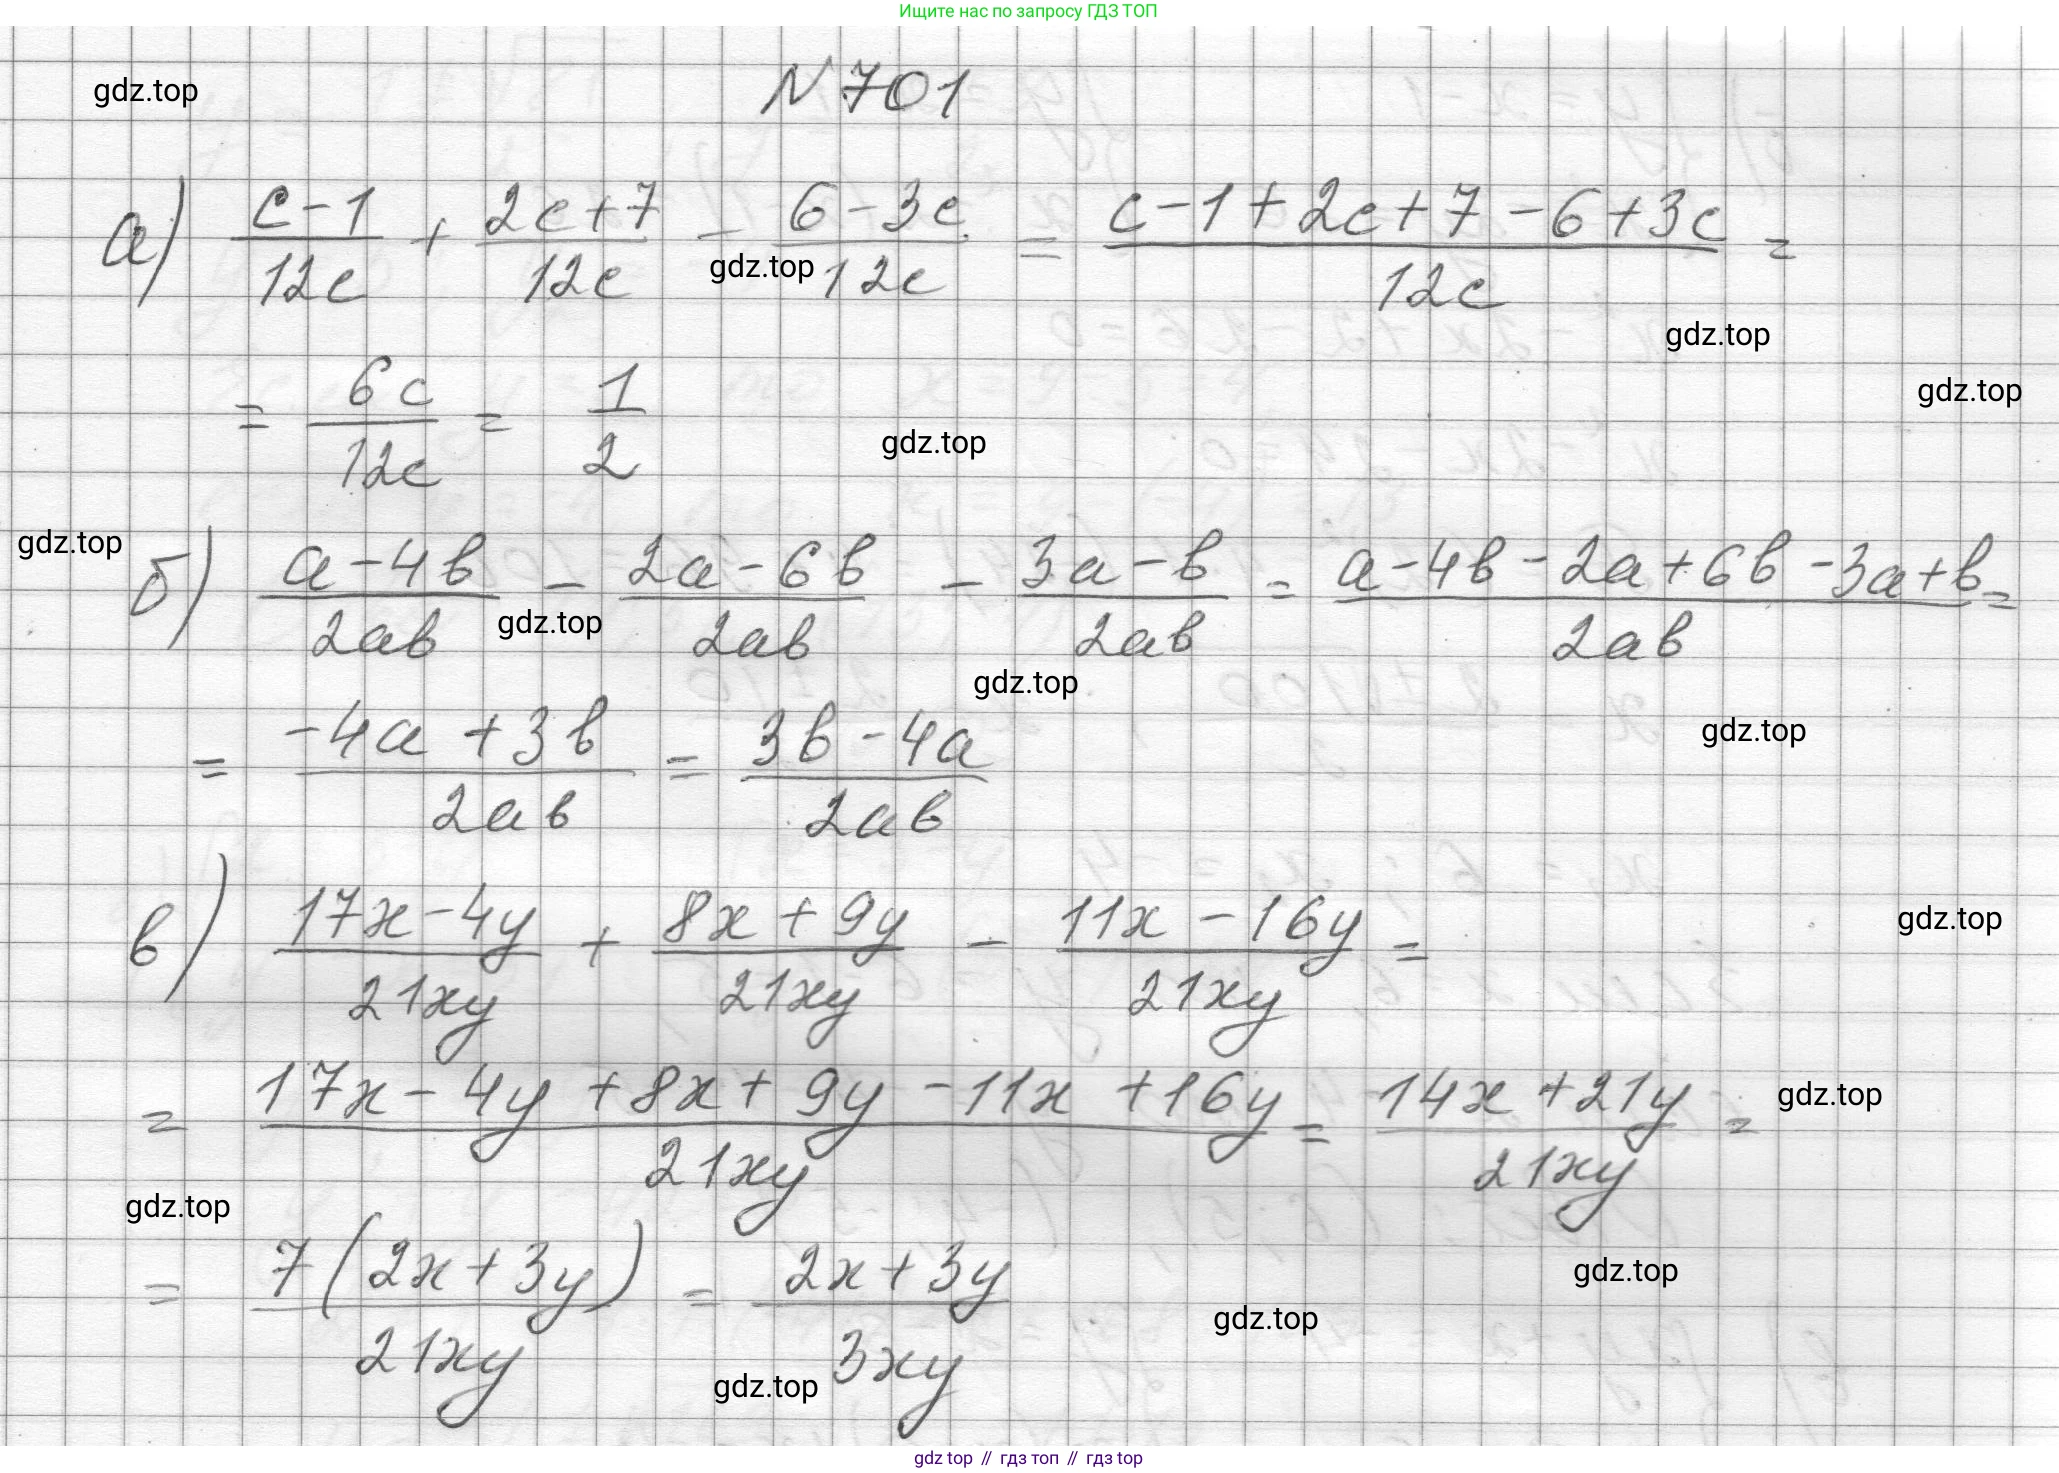 Ищите нас по запросу ГДЗ ТОП
gdz.top
N 701
а) (c-1)/(12c) + (2c+7)/(12c) - (6-3c)/(12c) = (c-1+2c+7-6+3c)/(12c) =
gdz.top
gdz.top
= 6c/(12c) = 1/2
gdz.top
gdz.top
gdz.top
б) (a-4b)/(2ab) - (2a-6b)/(2ab) - (3a-b)/(2ab) = (a-4b-2a+6b-3a+b)/(2ab) =
gdz.top
gdz.top
gdz.top
= (-4a+3b)/(2ab) = (3b-4a)/(2ab)
gdz.top
в) (17x-4y)/(21xy) + (8x+9y)/(21xy) - (11x-16y)/(21xy) =
= (17x-4y+8x+9y-11x+16y)/(21xy) = (14x+21y)/(21xy) =
gdz.top
gdz.top
= 7(2x+3y)/(21xy) = (2x+3y)/(3xy)
gdz.top
gdz.top
gdz.top
gdz top // гдз топ // gdz top